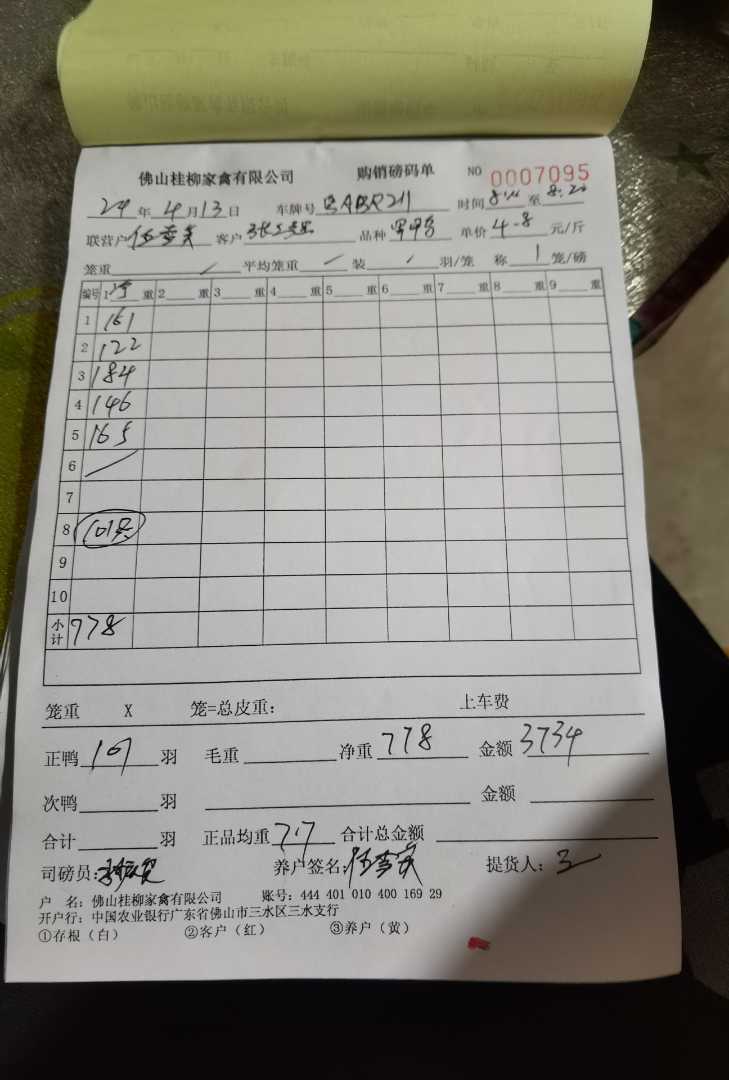 佛山桂柳家禽有限公司 购销磅码单 NO 0007095
24年4月13日 车牌号 时间 至
联营户 客户 品种 单价4-8元/斤
笼重 / 平均笼重 / 装 / 羽/笼 称 1 笼/磅
编号 1 重 2 重 3 重 4 重 5 重 6 重 7 重 8 重 9 重
1 161
2 122
3 184
4 146
5 165
6 /
7
8 101只
9
10
小计 778
笼重 X 笼=总皮重: 上车费
正鸭 101 羽 毛重 净重 778 金额 3734
次鸭 羽 金额
合计 羽 正品均重 7.7 合计总金额
司磅员: 养户签名: 提货人:
户 名: 佛山桂柳家禽有限公司 账号: 444 401 010 400 169 29
开户行: 中国农业银行广东省佛山市三水区三水支行
①存根(白) ②客户(红) ③养户(黄)